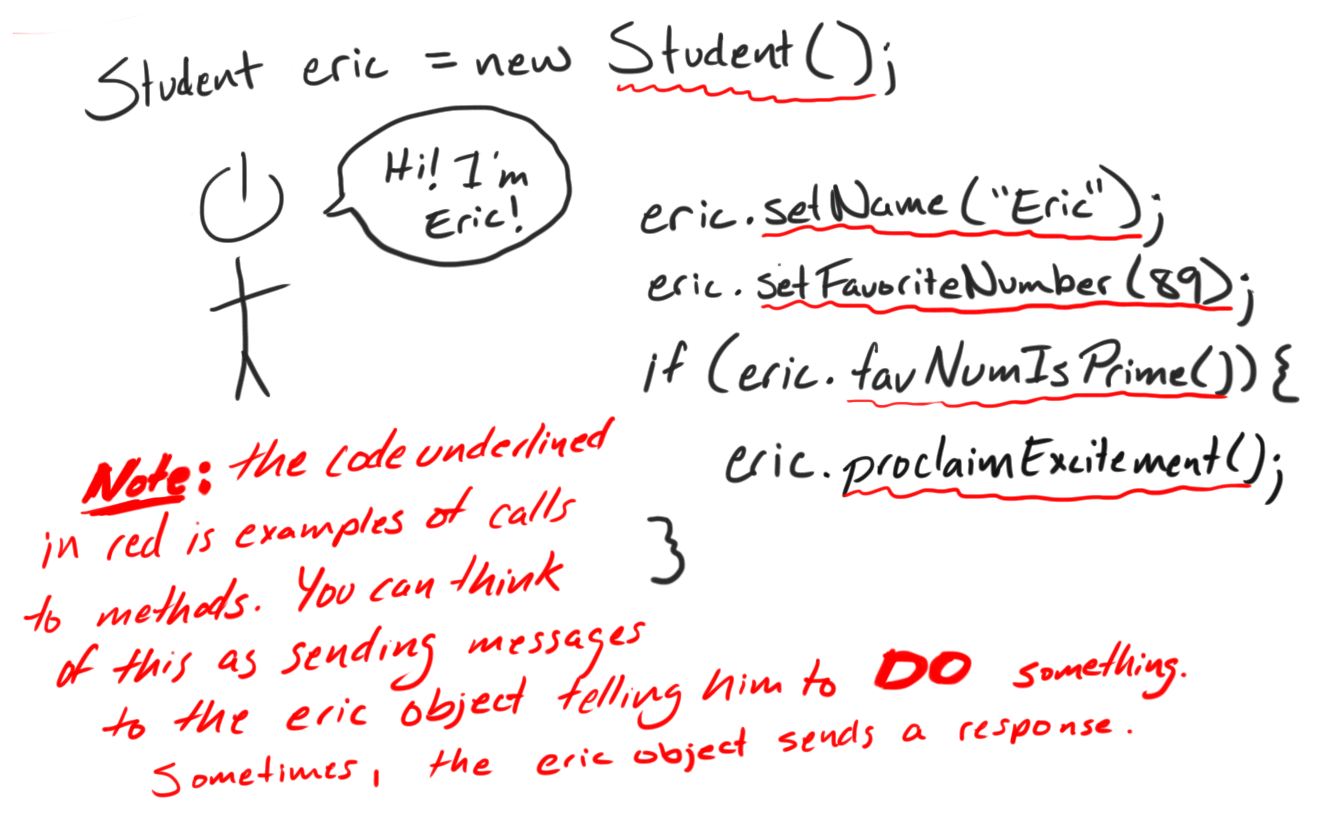 Student eric = new Student();
Hi! I'm
Eric!
eric.setName("Eric");
eric.setFavoriteNumber(89);
if (eric.favNumIsPrime()){
eric.proclaimExcitement();
}
Note: the code underlined
in red is examples of calls
to methods. You can think
of this as sending messages
to the eric object telling him to DO something.
Sometimes, the eric object sends a response.